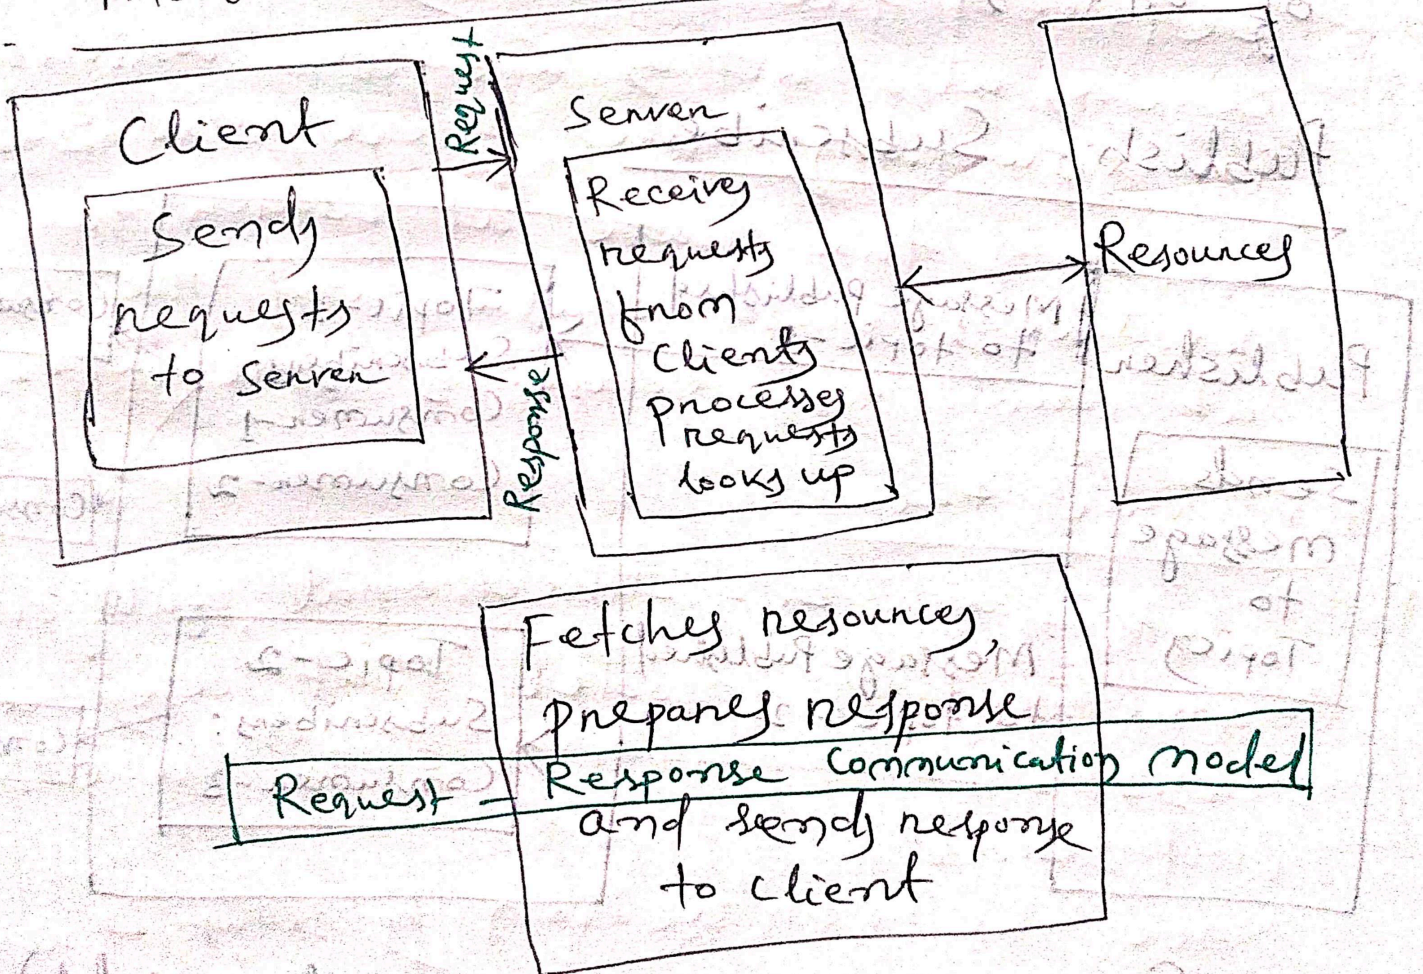 Client
Sends
requests
to server
Request
Response
Server
Receives
requests
from
Clients
processes
requests
looks up
Resources
Fetches resources,
prepares response
Request - Response Communication model
and sends response
to client